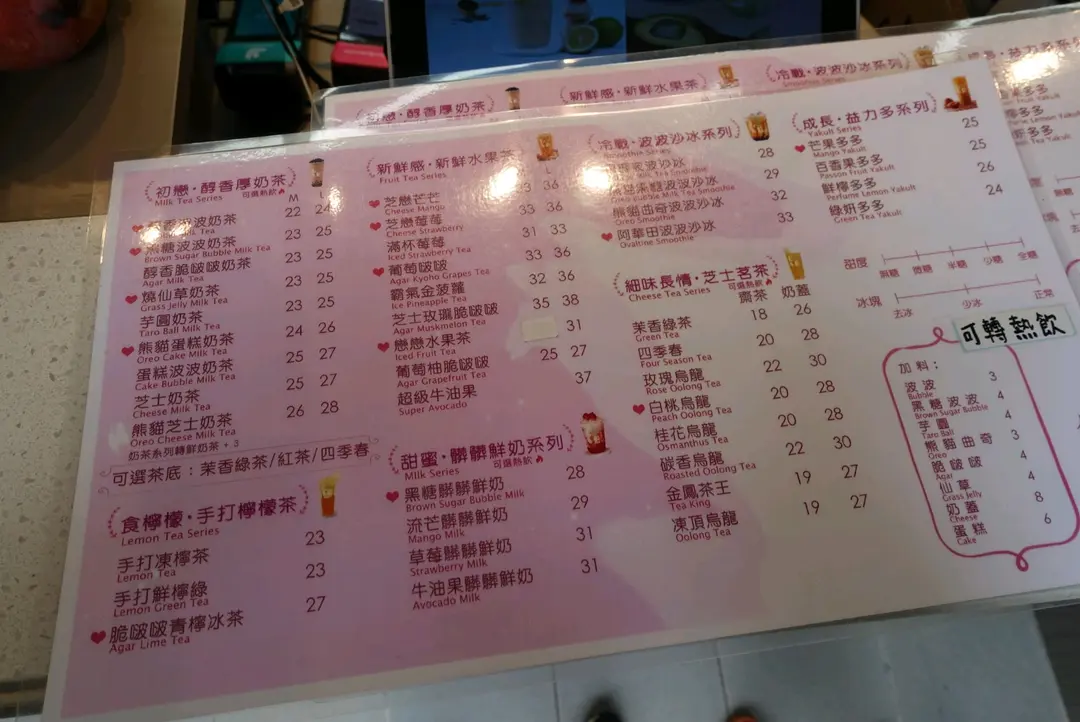 初戀·醇香厚奶茶
Milk Tea Series 可選熱飲
M
22 24
波波奶茶
Milk Tea
23 25
黑糖波波奶茶
Brown Sugar Bubble Milk Tea
23 25
醇香脆啵啵奶茶
Agar Milk Tea
23 25
燒仙草奶茶
Grass Jelly Milk Tea
23 25
芋圓奶茶
Taro Ball Milk Tea
24 26
熊貓蛋糕奶茶
Oreo Cake Milk Tea
25 27
蛋糕波波奶茶
Cake Bubble Milk Tea
25 27
芝士奶茶
Cheese Milk Tea
26 28
熊貓芝士奶茶
Oreo Cheese Milk Tea
奶茶系列轉鮮奶茶 + 3
可選茶底：茉香綠茶/紅茶/四季春
食檸檬·手打檸檬茶
Lemon Tea Series
23
手打凍檸茶
Lemon Tea
23
手打鮮檸綠
Lemon Green Tea
27
脆啵啵青檸冰茶
Agar Lime Tea
新鮮感·新鮮水果茶
Fruit Tea Series
L
36
芝戀芒芒
Cheese Mango
33 36
芝戀莓莓
Cheese Strawberry
31 33
滿杯莓莓
Iced Strawberry Tea
33 36
葡萄啵啵
Agar Kyoho Grapes Tea
32 36
霸氣金菠蘿
Ice Pineapple Tea
35 38
芝士玫瓏脆啵啵
Agar Muskmelon Tea
31
戀戀水果茶
Iced Fruit Tea
25 27
葡萄柚脆啵啵
Agar Grapefruit Tea
37
超級牛油果
Super Avocado
甜蜜·髒髒鮮奶系列
Milk Series 可選熱飲
28
黑糖髒髒鮮奶
Brown Sugar Bubble Milk
29
流芒髒髒鮮奶
Mango Milk
31
草莓髒髒鮮奶
Strawberry Milk
31
牛油果髒髒鮮奶
Avocado Milk
冷戰·波波沙冰系列
Smoothie Series
28
波波沙冰
Milk Tea Smoothie
29
波波沙冰
Oreo Bubble Milk Tea Smoothie
32
熊貓曲奇波波沙冰
Oreo Smoothie
33
阿華田波波沙冰
Ovaltine Smoothie
細味長情·芝士茗茶
Cheese Tea Series 可選熱飲
齋茶 奶蓋
18 26
茉香綠茶
Green Tea
20 28
四季春
Four Season Tea
22 30
玫瑰烏龍
Rose Oolong Tea
20 28
白桃烏龍
Peach Oolong Tea
20 28
桂花烏龍
Osmanthus Tea
22 30
碳香烏龍
Roasted Oolong Tea
19 27
金鳳茶王
Tea King
19 27
凍頂烏龍
Oolong Tea
成長·益力多系列
Yakult Series
25
芒果多多
Mango Yakult
25
百香果多多
Passion Fruit Yakult
26
鮮檸多多
Perfume Lemon Yakult
24
綠妍多多
Green Tea Yakult
甜度
無糖 微糖 半糖 少糖 全糖
冰塊
去冰 少冰 正常
可轉熱飲
加料：
波波 3
Bubble
黑糖波波 4
Brown Sugar Bubble
芋圓 4
Taro Ball
熊貓曲奇 3
Oreo
脆啵啵 4
Agar
仙草 4
Grass Jelly
奶蓋 8
Cheese
蛋糕 6
Cake
初戀·醇香厚奶茶
新鮮感·新鮮水果茶
冷戰·波波沙冰系列
益力多系列